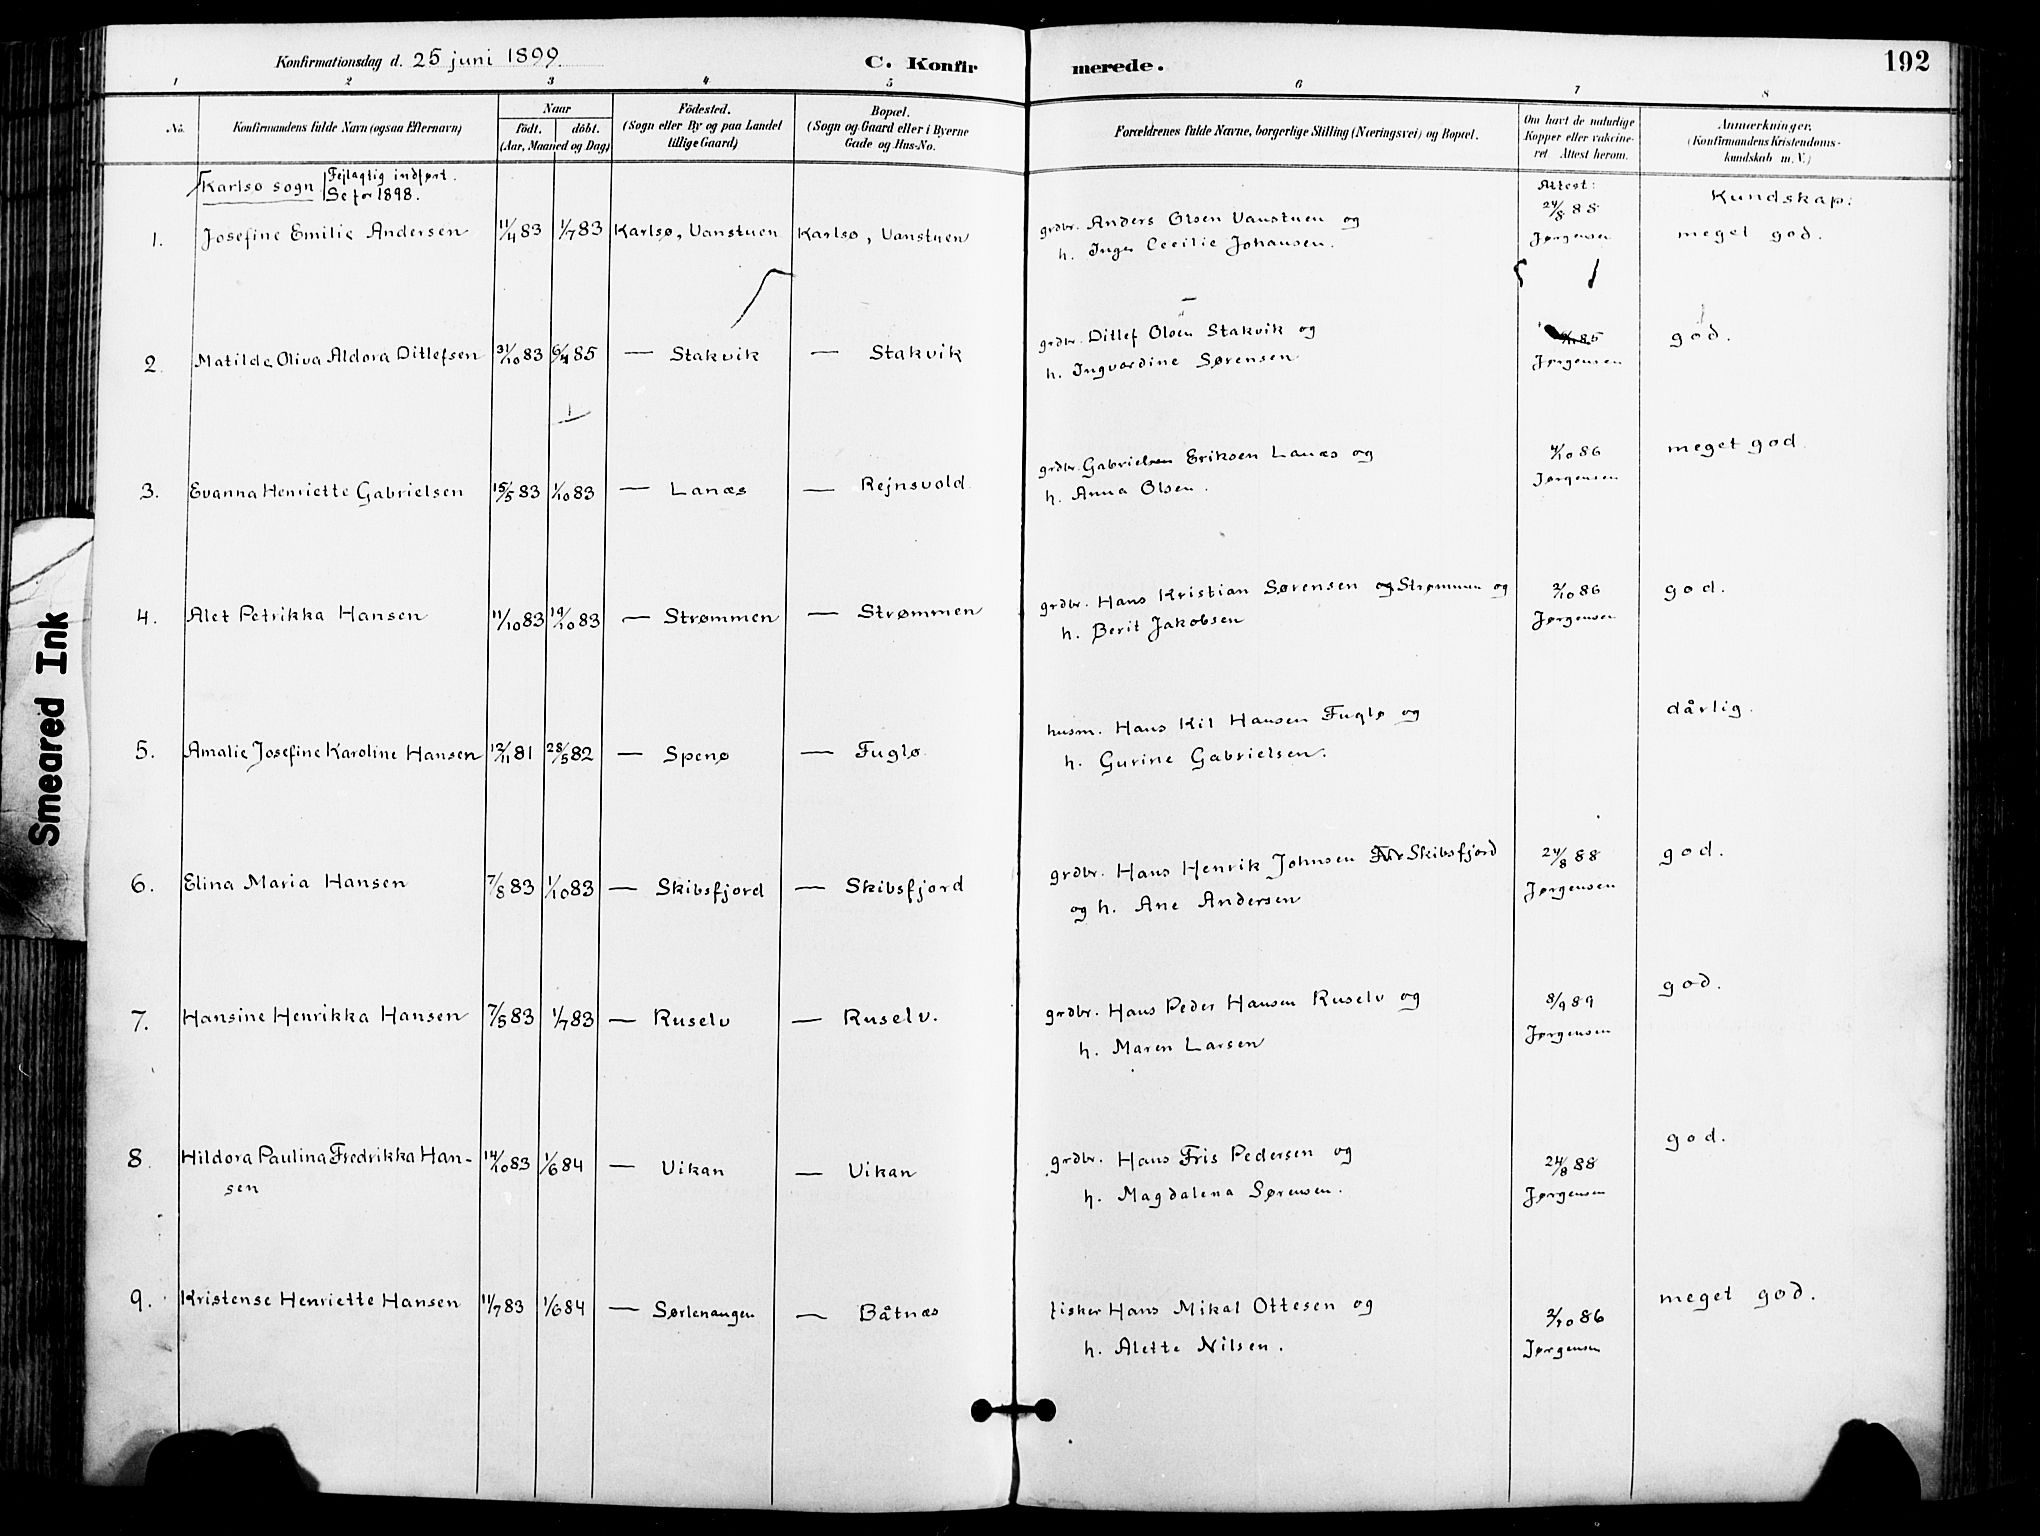 Konfirmationsdag d. 25 juni 1899.
C. Konfir
merede.
192
1 2 3 4 5 6 7 8
No.
Konfirmandens fulde Navn (ogsaa Efternavn)
Naar
födt. döbt.
(Aar, Maaned og Dag)
Födested.
(Sogn eller By og paa Landet
tillige Gaard)
Bopæl.
(Sogn og Gaard eller i Byerne
Gade og Hus-No.
Forældrenes fulde Navne, borgerlige Stilling (Næringsvei) og Bopæl.
Om havt de naturlige
Kopper eller vakcine-
ret Attest herom.
Anmærkninger.
(Konfirmandens Kristendoms-
kundskab m. V.)
Karlsø sogn
Fejlagtig indført.
Se for 1898.
Attest:
Kundskap:
1. Josefine Emilie Andersen 11/4 83 1/7 83 Karlsø, Vanstuen Karlsø, Vanstuen grdbr. Anders Olsen Vanstuen og 24/8 88
h. Inger Cecilie Johansen. Jørgensen meget god.
2. Matilde Oliva Aldora Ditlefsen 31/10 83 6/4 85 — Stakvik — Stakvik grdbr. Ditlef Olsen Stakvik og 85 god.
h. Ingvardine Sørensen Jørgensen
3. Evanna Henriette Gabrielsen 15/5 83 1/10 83 — Lanæs — Rejnsvold grdbr. Gabrielsen Eriksen Lanæs og 4/10 86 meget god
h. Anna Olsen. Jørgensen
4. Alet Petrikka Hansen 11/10 83 19/10 83 — Strømmen — Strømmen grdbr. Hans Kristian Sørensen og Strømmen og 2/10 86 god.
h. Berit Jakobsen Jørgensen
5. Amalie Josefine Karoline Hansen 12/11 81 28/5 82 — Spenø — Fuglø husm. Hans Kil Hansen Fuglø og dårlig.
h. Gurine Gabrielsen.
6. Elina Maria Hansen 7/8 83 1/10 83 — Skibsfjord — Skibsfjord grdbr. Hans Henrik Johnsen Skibsfjord 24/8 88 god.
og h. Ane Andersen Jørgensen
7. Hansine Henrikka Hansen 7/5 83 1/7 83 — Ruselv — Ruselv. grdbr. Hans Peder Hansen Ruselv og 8/9 89 god.
h. Maren Larsen Jørgensen
8 Hildora Paulina Fredrikka Han- 14/10 83 1/6 84 — Vikan — Vikan grdbr. Hans Fris Pedersen og 24/8 88 god.
sen h. Magdalena Sørensen. Jørgensen
9. Kristense Henriette Hansen 11/7 83 1/6 84 — Sørlenangen — Båtnæs fisker Hans Mikal Ottesen og 2/10 86 meget god.
h. Alette Nilsen. Jørgensen
Smeared Ink